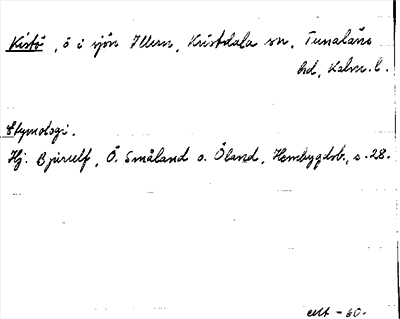 Kistö, ö i sjön Illern, Kristdala sn, Tunaläns
hd, Kalm. l.
Etymologi.
Hj. Bjurulf, Ö. Småland o. Öland, Hembygdsb., s. 28.
-60.